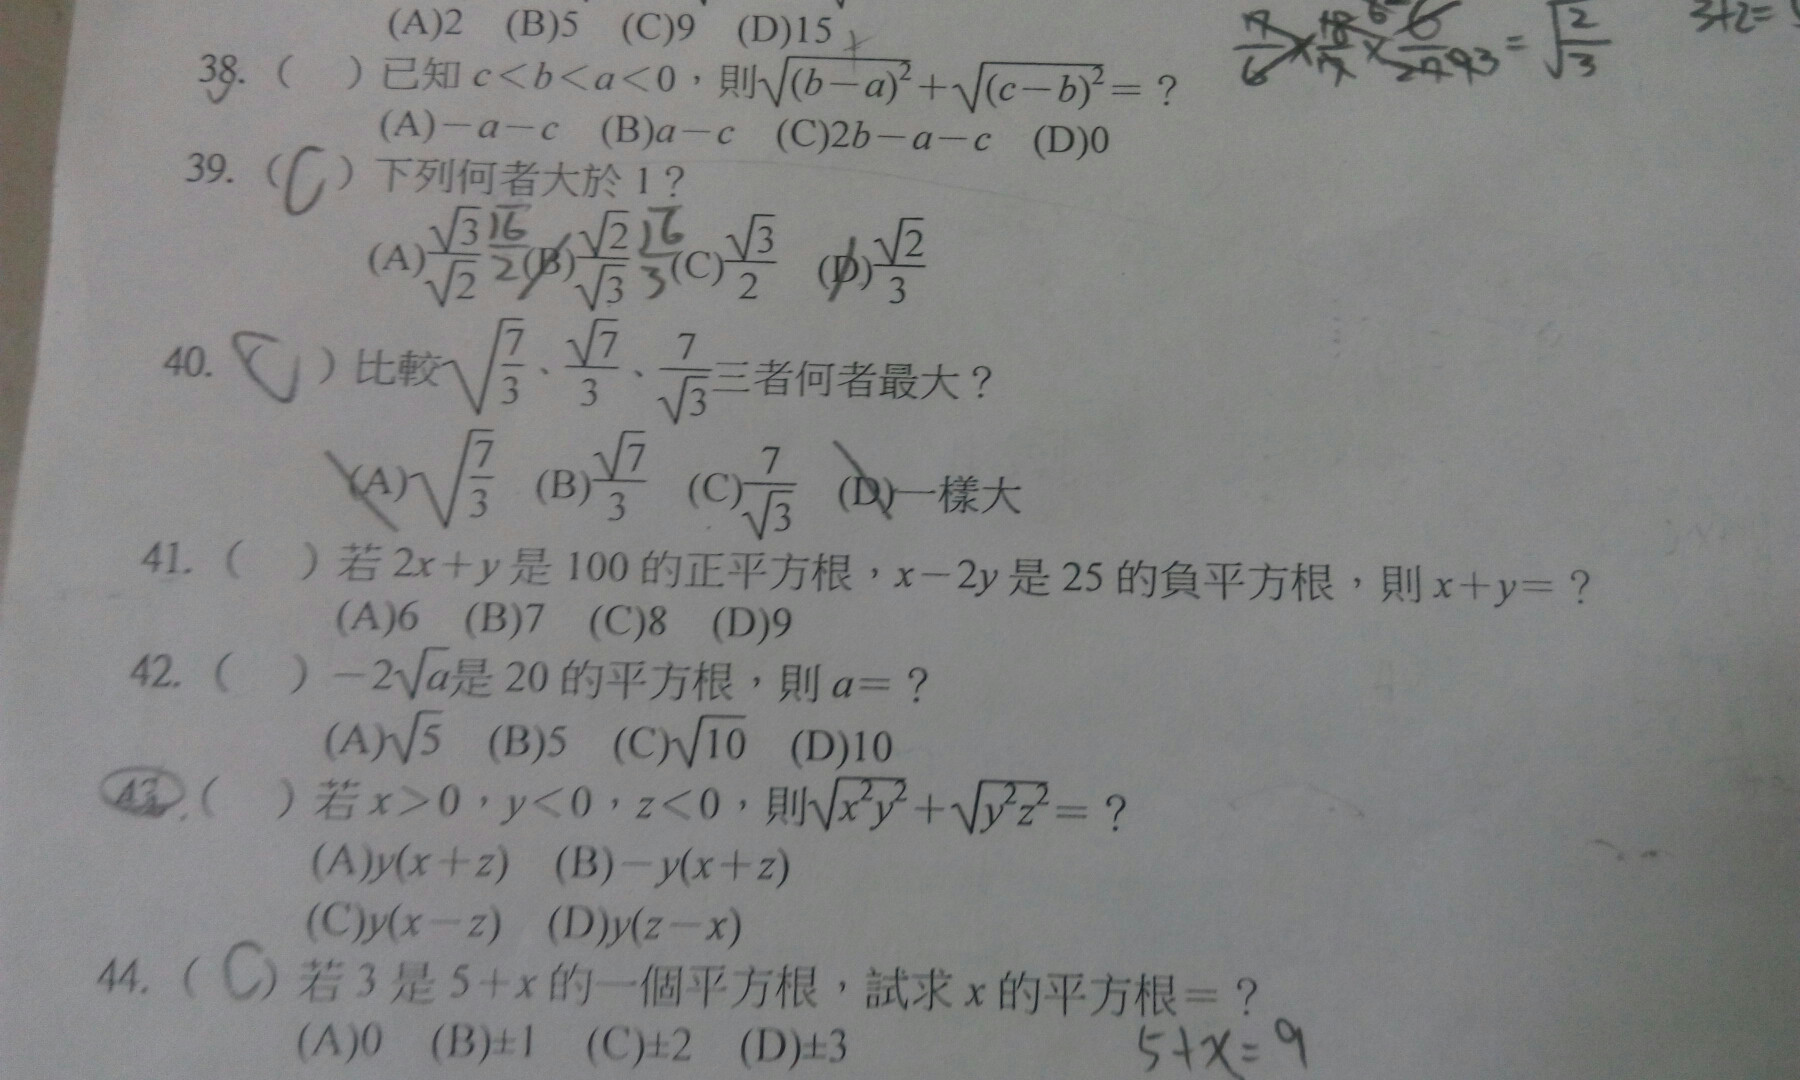 (A)2 (B)5 (C)9 (D)15
38. ( ) 已知 c<b<a<0，則√(b−a)²+√(c−b)²=？
(A)−a−c (B)a−c (C)2b−a−c (D)0
39. (C) 下列何者大於 1？
(A)√3/√2 √6/2 (B)√2/√3 √6/3 (C)√3/2 (D)√2/3
40. (C) 比較√(7/3)、√7/3、7/√3三者何者最大？
(A)√(7/3) (B)√7/3 (C)7/√3 (D)一樣大
41. ( ) 若 2x+y 是 100 的正平方根，x−2y 是 25 的負平方根，則 x+y=？
(A)6 (B)7 (C)8 (D)9
42. ( ) −2√a是 20 的平方根，則 a=？
(A)√5 (B)5 (C)√10 (D)10
43. ( ) 若 x>0，y<0，z<0，則√x²y²+√y²z²=？
(A)y(x+z) (B)−y(x+z)
(C)y(x−z) (D)y(z−x)
44. (C) 若 3 是 5+x 的一個平方根，試求 x 的平方根=？
(A)0 (B)±1 (C)±2 (D)±3
5+x=9
=√(2/3)
3+2=